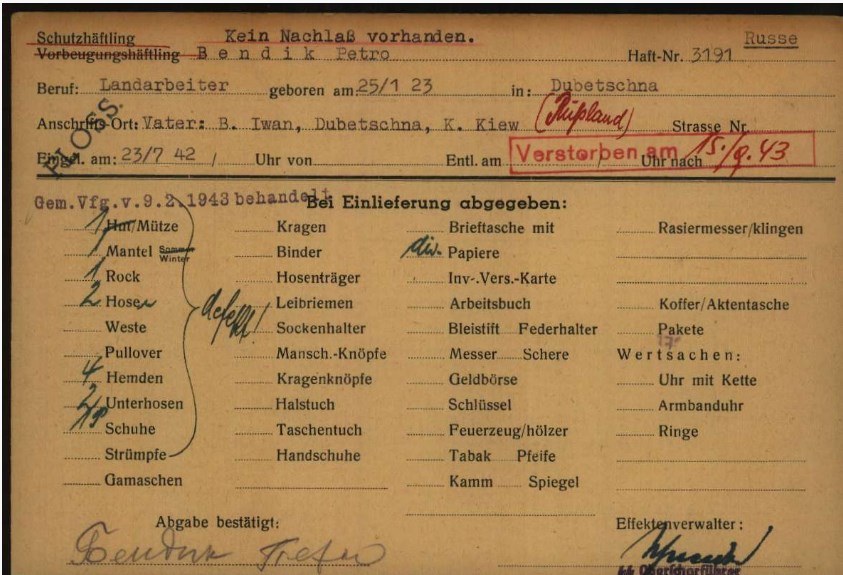 Schutzhäftling Kein Nachlaß vorhanden. Russe
Vorbeugungshäftling Bendik Petro Haft-Nr. 3191
Beruf: Landarbeiter geboren am: 25/1 23 in: Dubetschna
FLOSS.
Anschrifts-Ort: Vater: B. Iwan, Dubetschna, K. Kiew (Rußland) Strasse Nr.
Eingel. am: 23/7 42 / Uhr von Entl. am Uhr nach
Verstorben am 15./9.43
Gem.Vfg.v.9.2.1943 behandelt
Bei Einlieferung abgegeben:
1 Hut/Mütze Kragen Brieftasche mit Rasiermesser/klingen
1 Mantel Sommer Winter Binder div. Papiere
1 Rock Hosenträger Inv.-Vers.-Karte
2 Hosen Leibriemen Arbeitsbuch Koffer/Aktentasche
defekt!
Weste Sockenhalter Bleistift Federhalter Pakete
Pullover Mansch.-Knöpfe Messer Schere Wertsachen:
4 Hemden Kragenknöpfe Geldbörse Uhr mit Kette
2 Unterhosen Halstuch Schlüssel Armbanduhr
1 P Schuhe Taschentuch Feuerzeug/hölzer Ringe
Strümpfe Handschuhe Tabak Pfeife
Gamaschen Kamm Spiegel
Abgabe bestätigt: Effektenverwalter:
Oberscharführer